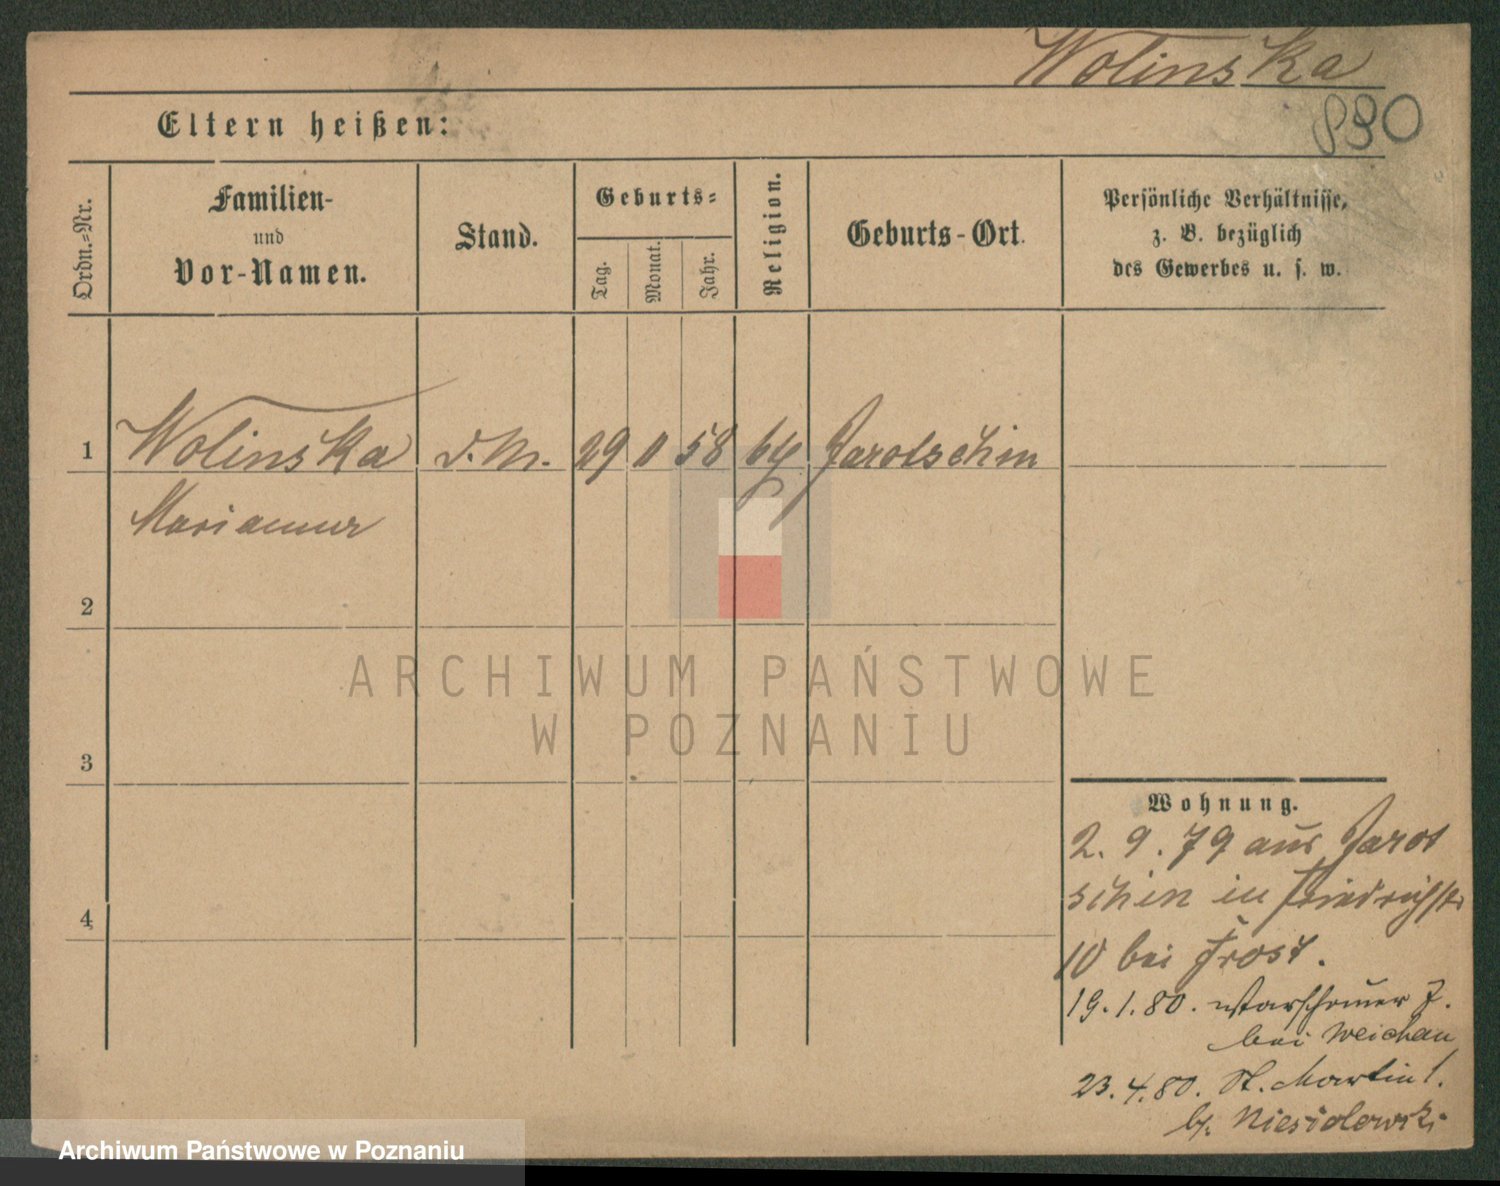 Wolinska
890
Eltern heißen:
Ordn.=Nr.
Familien-
und
Vor-Namen.
Stand.
Geburts=
Tag.
Monat.
Jahr.
Religion.
Geburts-Ort.
Persönliche Verhältnisse,
z. B. bezüglich
des Gewerbes u. s. w.
1 Wolinska d. M. 29 11 58 Jarotschin
Marianna
2
3
4
ARCHIWUM PAŃSTWOWE
W POZNANIU
Wohnung.
2. 9. 79 aus Jarot
schin in Friedrichstr
10 bei Frost.
19. 1. 80. 7.
bei Weichan
23. 4. 80. St. Martin 1.
b. Niesiolowski
Archiwum Państwowe w Poznaniu